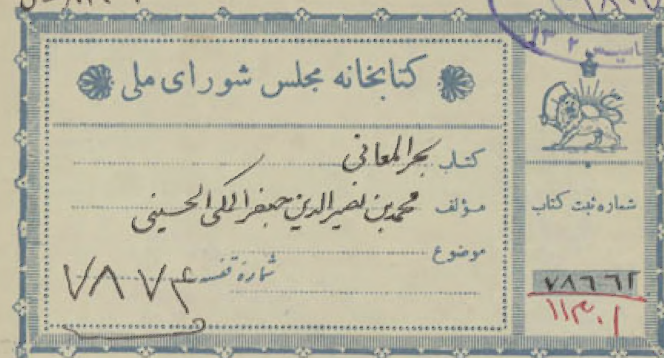 کتابخانه مجلس شورای ملی
کتاب بحر المعانی
مؤلف محمد بن نصیر الدین جعفر المکی الحسینی
موضوع
شماره قفسه ۷۸۷۴
شماره ثبت کتاب
۷۸۶۶۲
۱۱۳۰۱